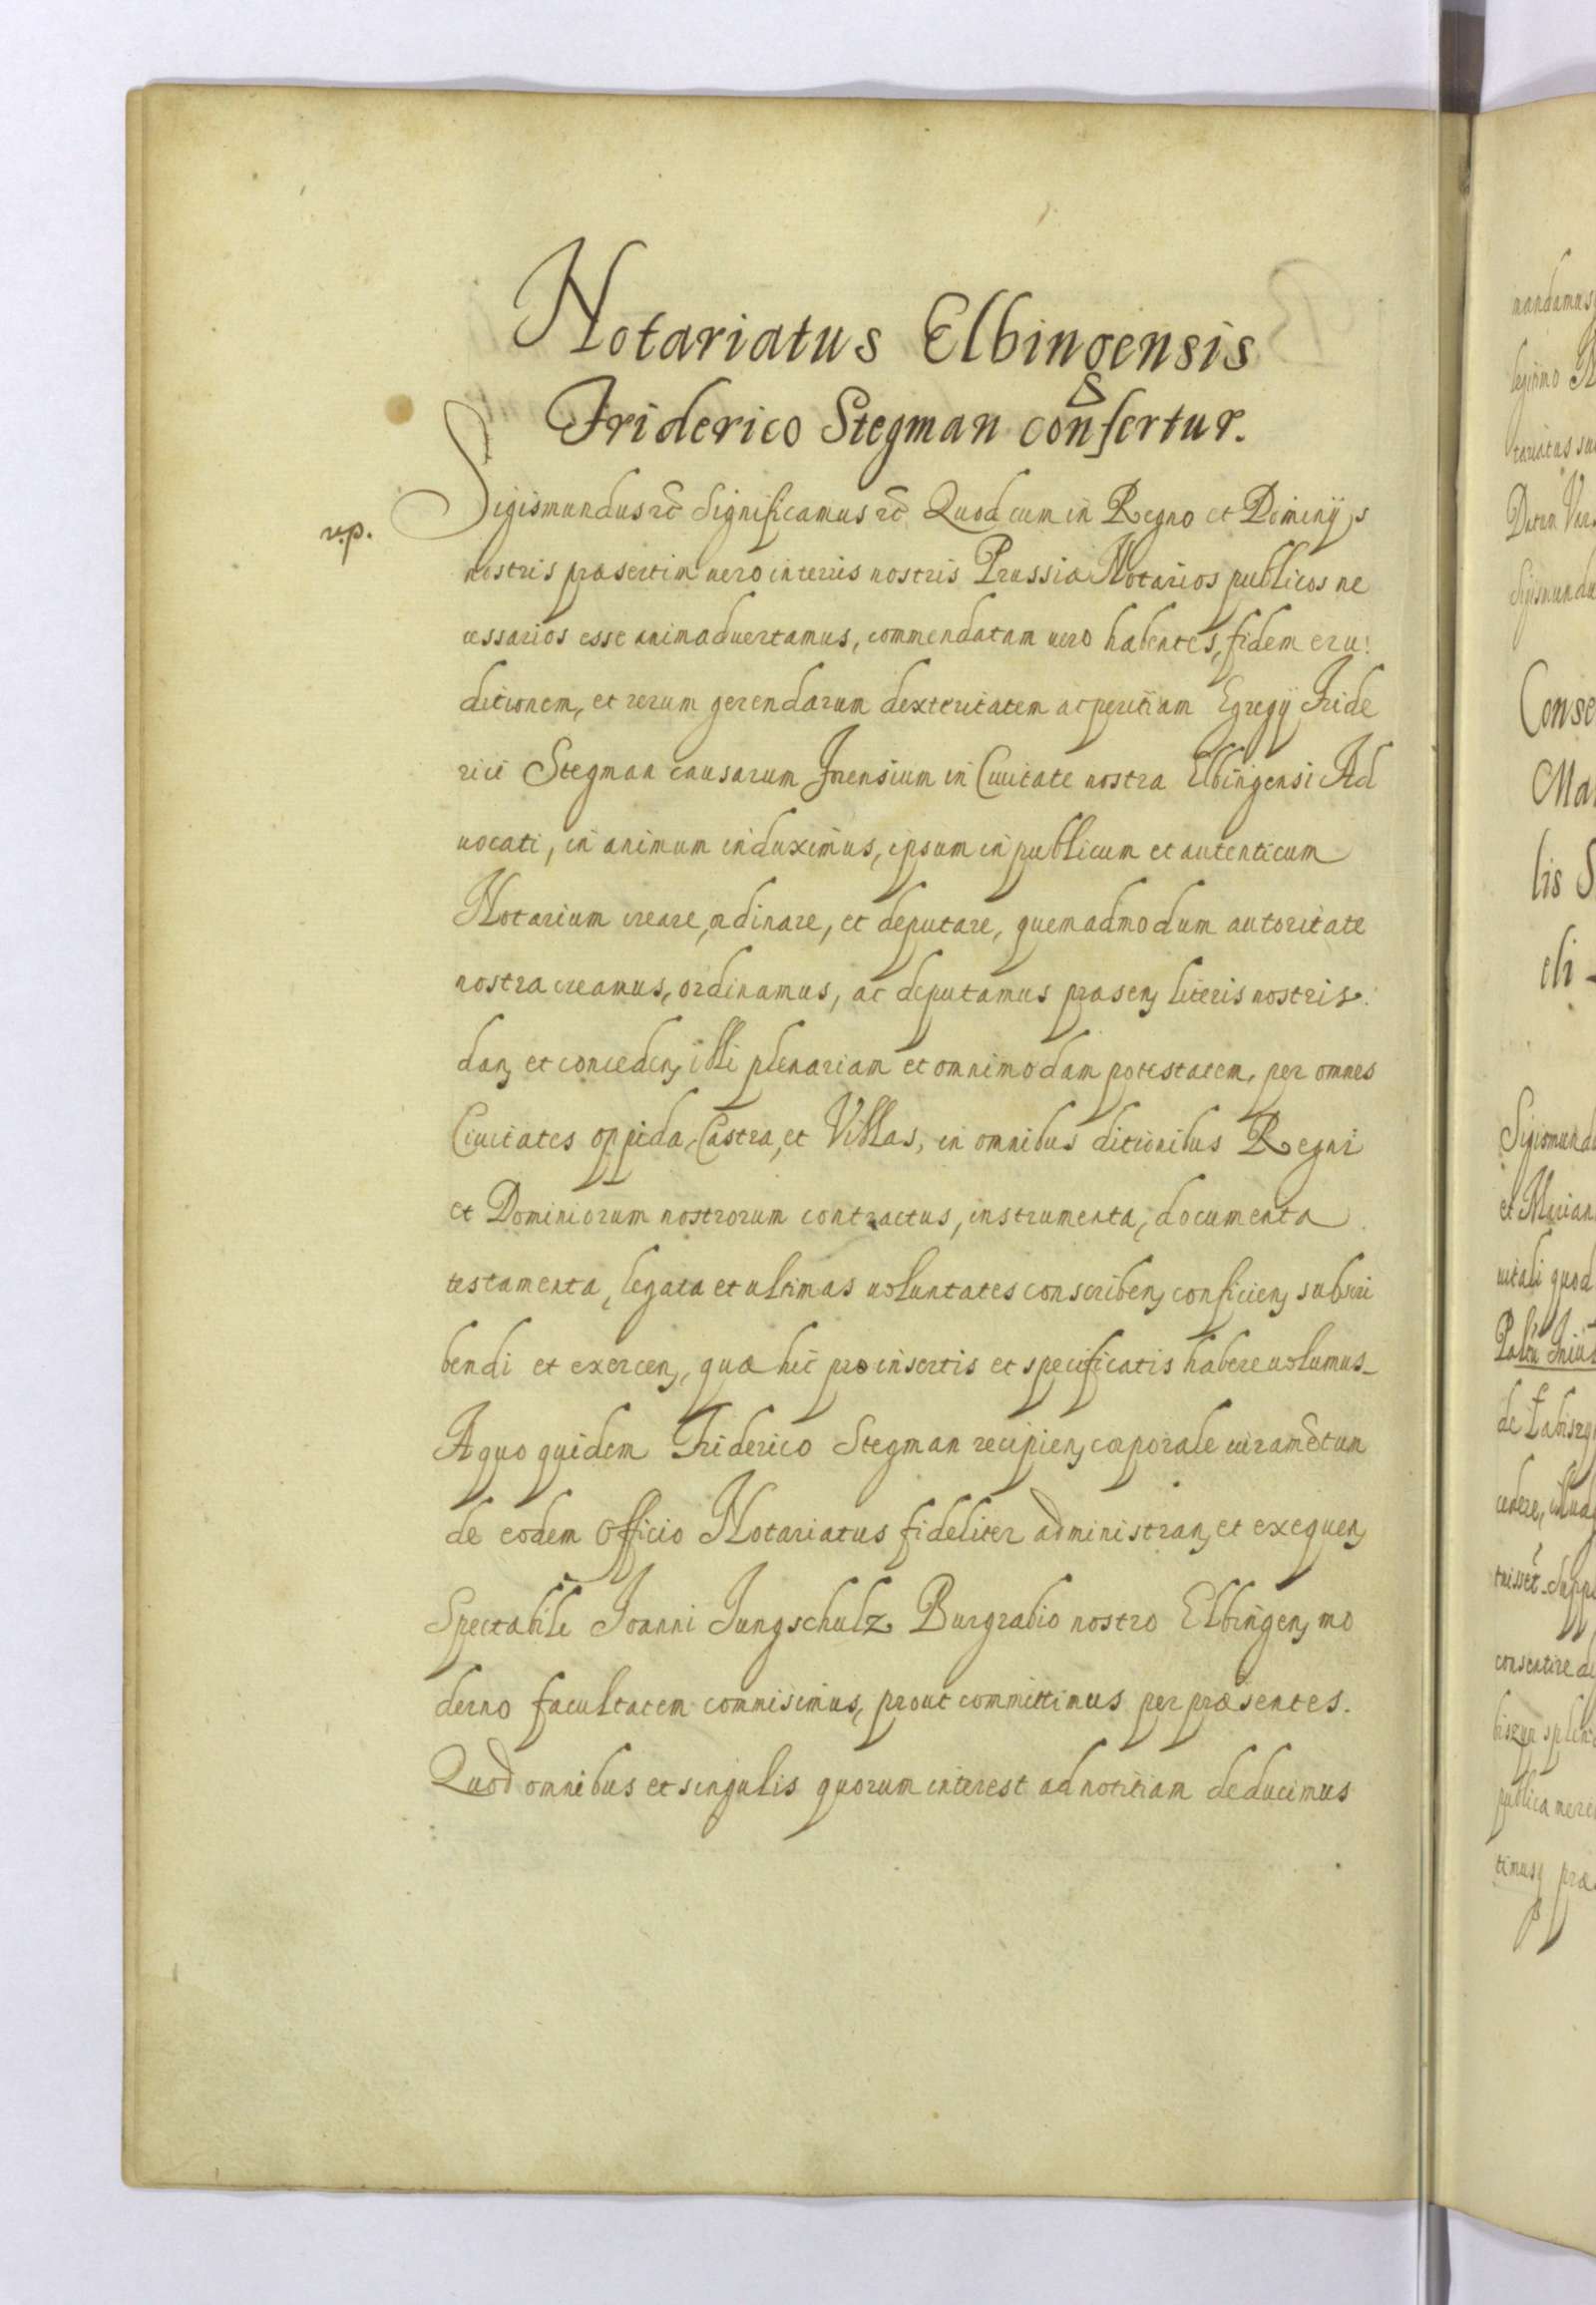 Notariatus Elbingensis
Friderico Stegman confertur.
v.p.
Sigismundus etc̄ Significamus etc̄ Quod cum in Regno et Dominijs
nostris præsertim uero in terris nostris Prussiæ Notarios publicos ne
cessarios esse animaduertamus, commendatam uero habentes, fidem eru:
ditionem, et rerum gerendarum dexteritatem ac peritiam Egregij Fride
rici Stegman causarum forensium in Ciuitate nostra Elbingensi Ad
uocati, in animum induximus, ipsum in publicum et autenticum
Notarium creare, ordinare, et deputare, quemadmodum autoritate
nostra creamus, ordinamus, ac deputamus præsen, literis nostris.
dan, et conceden, illi plenariam et omnimodam potestatem, per omnes
Ciuitates oppida, Castra, et Villas, in omnibus ditionibus Regni
et Dominiorum nostrorum contractus, instrumenta, documenta
testamenta, legata et ultimas uoluntates conscriben, conficien, subscri
bendi et exercen, quæ hic pro insertis et specificatis habere uolumus_
A quo quidem Friderico Stegman recipien, corporale iuramētum
de eodem Officio Notariatus fideliter administran, et exequen,
Spectabili Joanni Jungschulz Burgrabio nostro Elbingen, mo
derno facultatem commisimus, prout committimus per præsentes.
Quod omnibus et singulis quorum interest ad notitiam deducimus
mandamus
legitimo
Sigismundu
Conse
Ma
lis S
eli
Sigismund
et Marian
uitali quod
de Łabiszy
cedere,
consentire
publica